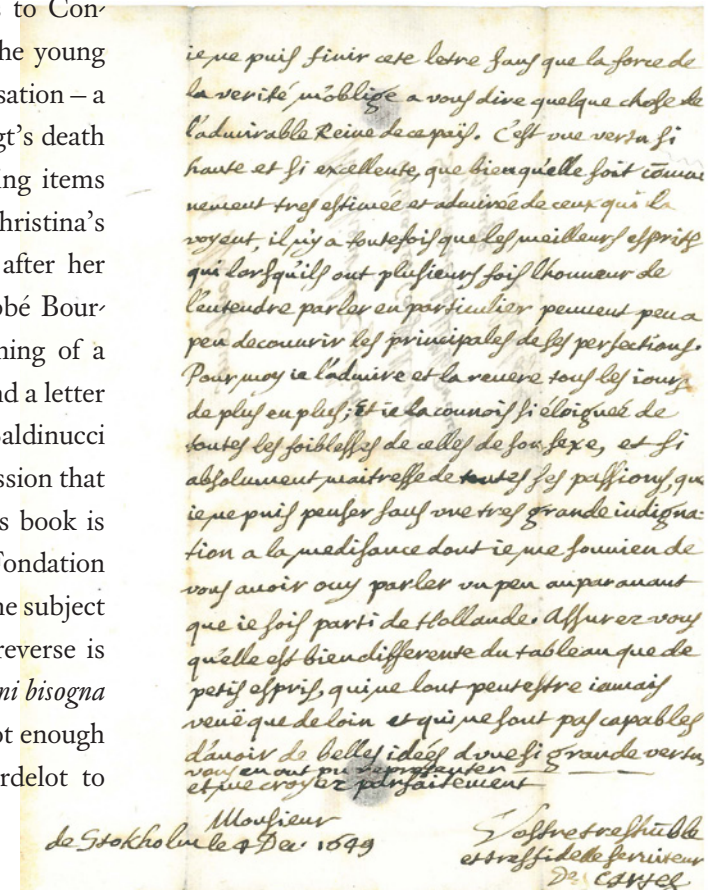 s to Con-
he young
sation – a
gt's death
ing items
hristina's
after her
bbé Bour-
ning of a
nd a letter
Baldinucci
ssion that
s book is
Fondation
he subject
reverse is
ni bisogna
ot enough
rdelot to
ie ne puis finir cete letre sans que la force de
la verité m'oblige a vous dire quelque chose de
l'admirable Reine de ce païs. C'est vne vertu si
haute et si excellente, que bien qu'elle soit cõmu
nement tres estimée et admirée de ceux qui la
voyent, il n'y a toutefois que les meilleurs esprits
qui lorsqu'ils ont plusieurs fois l'honneur de
l'entendre parler en particulier peuuent peu a
peu decouurir les principales de ses perfections.
Pour moy ie l'admire et la reuere tous les iours
de plus en plus; Et ie la connois si éloignée de
toutes les foiblesses de celles de son sexe, et si
absolument maitresse de toutes ses passions, que
ie ne puis penser sans vne tres grande indigna-
tion a la medisance dont ie me souuien de
vous auoir ouy parler vn peu auparauant
que ie sois parti de Hollande. Assurez vous
qu'elle est bien differente du tableau que de
petis espris, qui ne l'ont peutestre iamais
veuë que de loin et qui ne sont pas capables
d'auoir de belles idées d'vne si grande vertu,
vous en ont pu representer
et me croyez parfaitement
Monsieur
de Stokholm le 4 Dec. 1649
Vostre tres hũble
et tres fidelle seruiteur
Des cartes